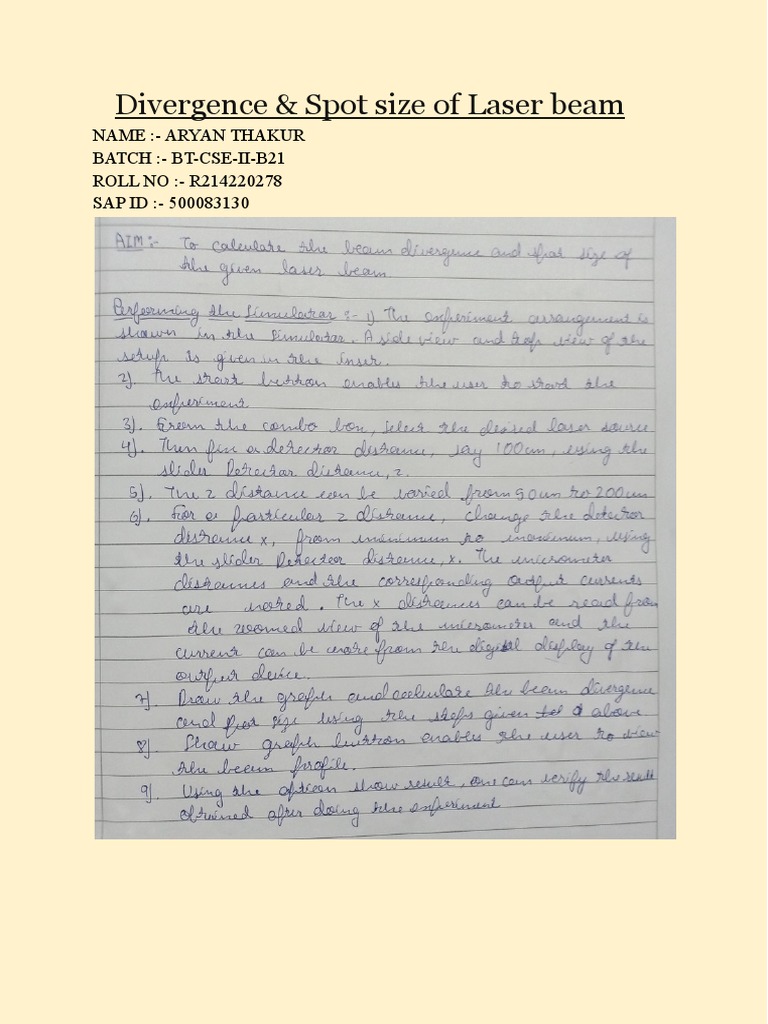 Divergence & Spot size of Laser beam
NAME :- ARYAN THAKUR
BATCH :- BT-CSE-II-B21
ROLL NO :- R214220278
SAP ID :- 500083130
AIM :- To calculate the beam divergence and spot size of
the given laser beam.
Performing the Simulator :- 1) The experiment arrangement is
shown in the simulator. A side view and top view of the
setup is given in the inset.
2). The start button enables the user to start the
experiment
3). From the combo box, select the desired laser source
4). Then fix a detector distance, say 100cm, using the
slider Detector distance, z.
5). The z distance can be varied from 50cm to 200cm
6). For a particular z distance, change the detector
distance x, from minimum to maximum, using
the slider Detector distance, x. The micrometer
distances and the corresponding output currents
are noted. The x distances can be read from
the zoomed view of the micrometer and the
current can be note from the digital display of the
output device.
7). Draw the graph and calculate the beam divergence
and spot size using the steps given above
8). Show graph button enables the user to view
the beam profile.
9). Using the option show result, one can verify the result
obtained after doing the experiment